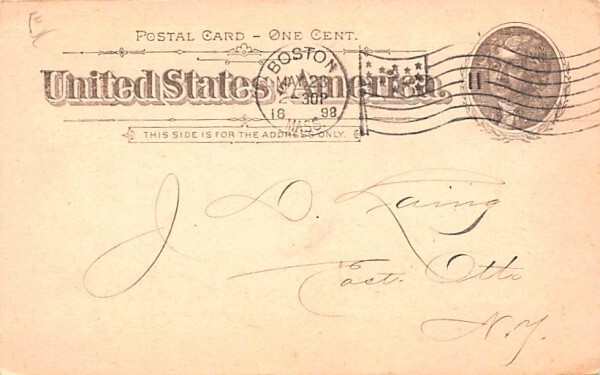 POSTAL CARD – ONE CENT.
United States of America.
BOSTON
MAR 28
2 30P
1898
MASS.
11
THIS SIDE IS FOR THE ADDRESS ONLY.
J. D. Laing
East Otto
N.Y.